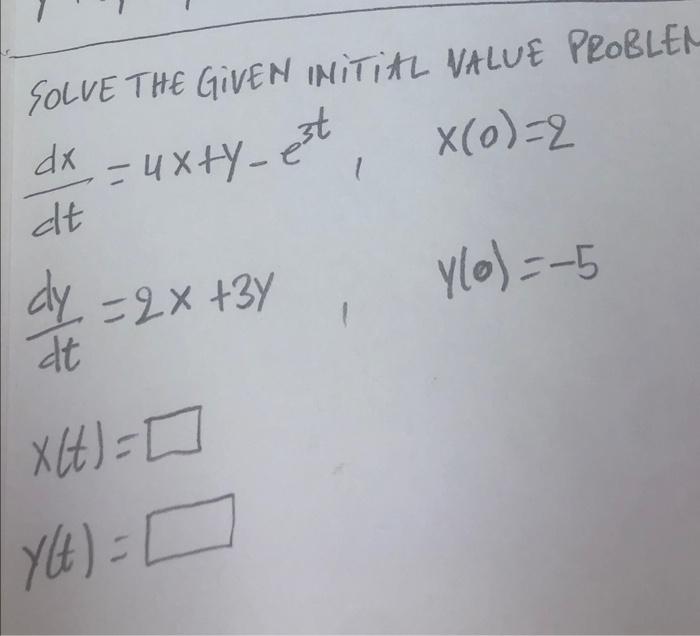 SOLVE THE GIVEN INITIAL VALUE PROBLEM
dx/dt = 4x+y-e^3t, x(0)=2
dy/dt = 2x+3y, y(0)=-5
x(t)=
y(t)=